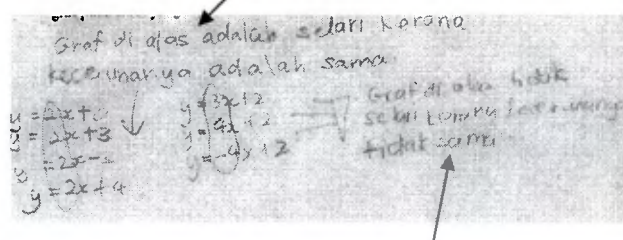 Graf di atas adalah selari kerana
kecerunannya adalah sama.
y = 2x +
= 2x + 3
= 2x -
y = 2x + 4
y = 3x + 2
y = 4x + 2
y = -4x + 2
Graf di atas tidak
selari kerana kecerunannya
tidak sama